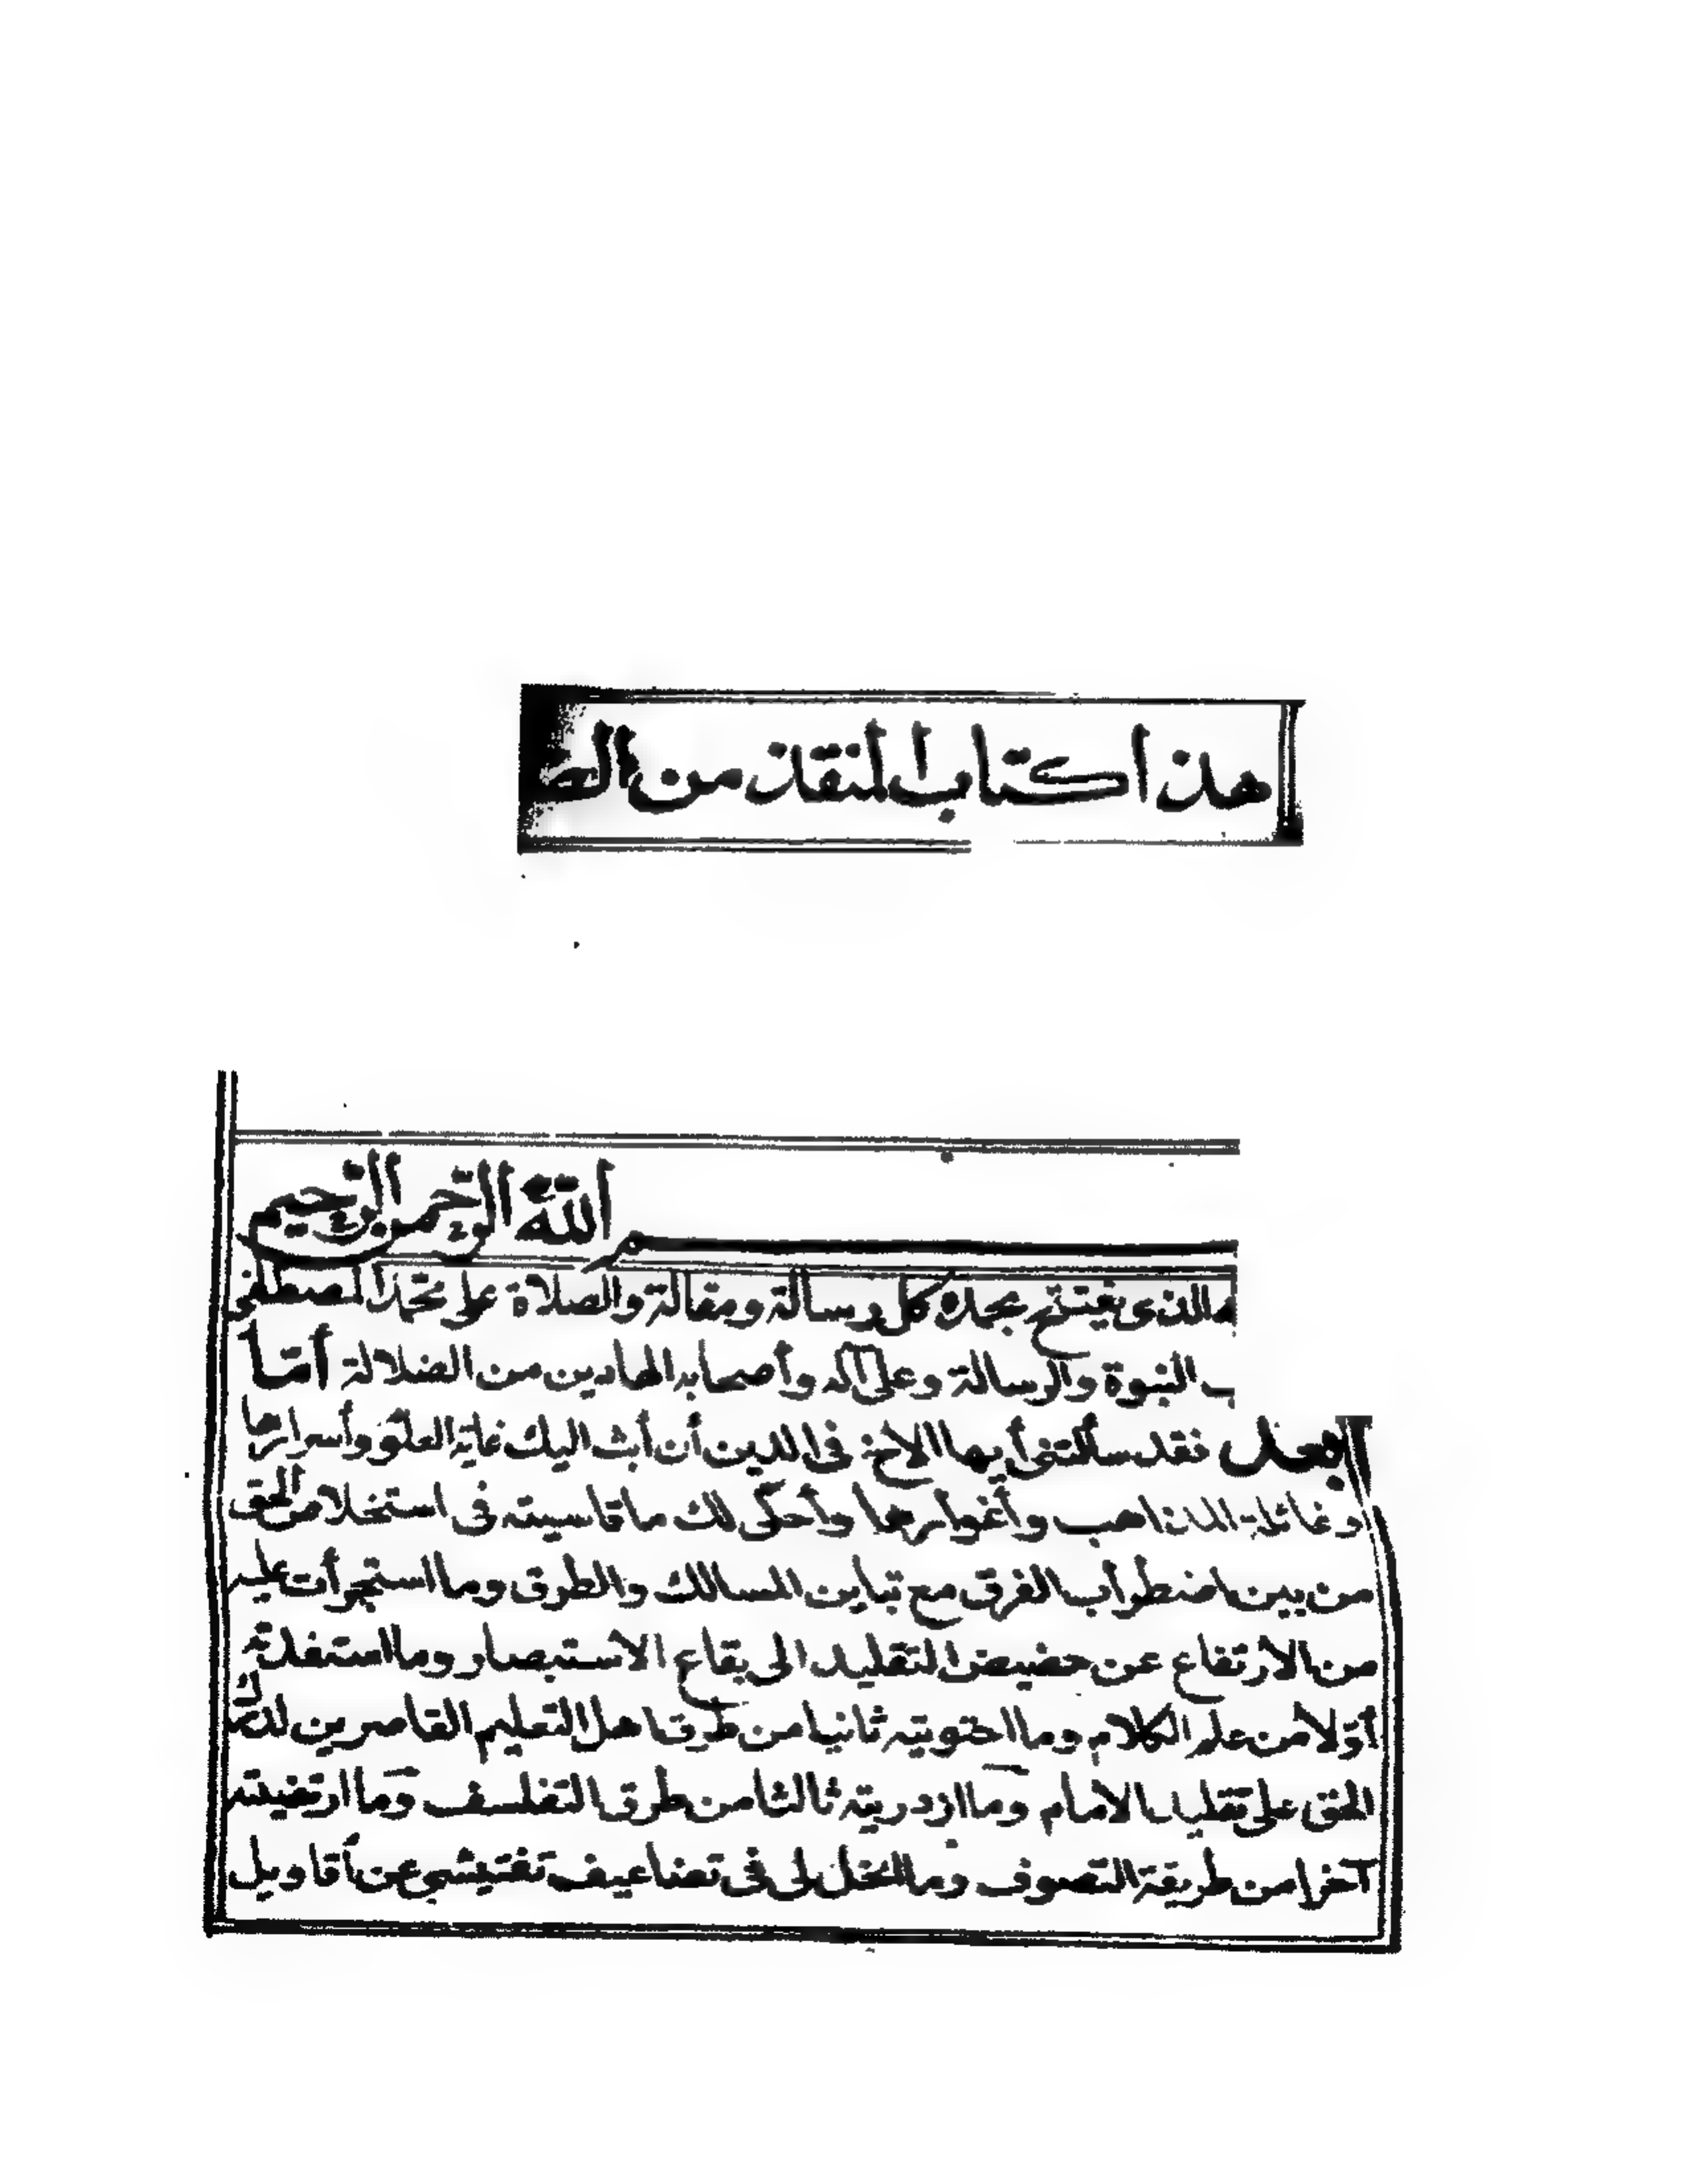 هذا كتاب المنقذ من
الله الرحمن الرحيم
الذى يفتتح بحمده كل رسالة ومقالة والصلاة على محمد المصطفى
النبوة والرسالة وعلى آله وأصحابه الهادين من الضلالة أما
بعد فقد سألتنى أيها الاخ فى الدين أن أبث اليك غاية العلوم وأسرارها
وغائلة المذاهب وأغوارها وأحكى لك ما قاسيته فى استخلاص الحق
من بين اضطراب الفرق مع تباين المسالك والطرق وما استجرأت عليه
من الارتفاع عن حضيض التقليد الى يقاع الاستبصار وما استفدته
أولا من علم الكلام وما احتويته ثانيا من طرق اهل التعليم القاصرين لدرك
الحق على تقليد الامام وما ازدريته ثالثا من طرق التفلسف وما ارتضيته
آخرا من طريقة التصوف وما انخل لى فى تضاعيف تفتيشى عن أقاويل